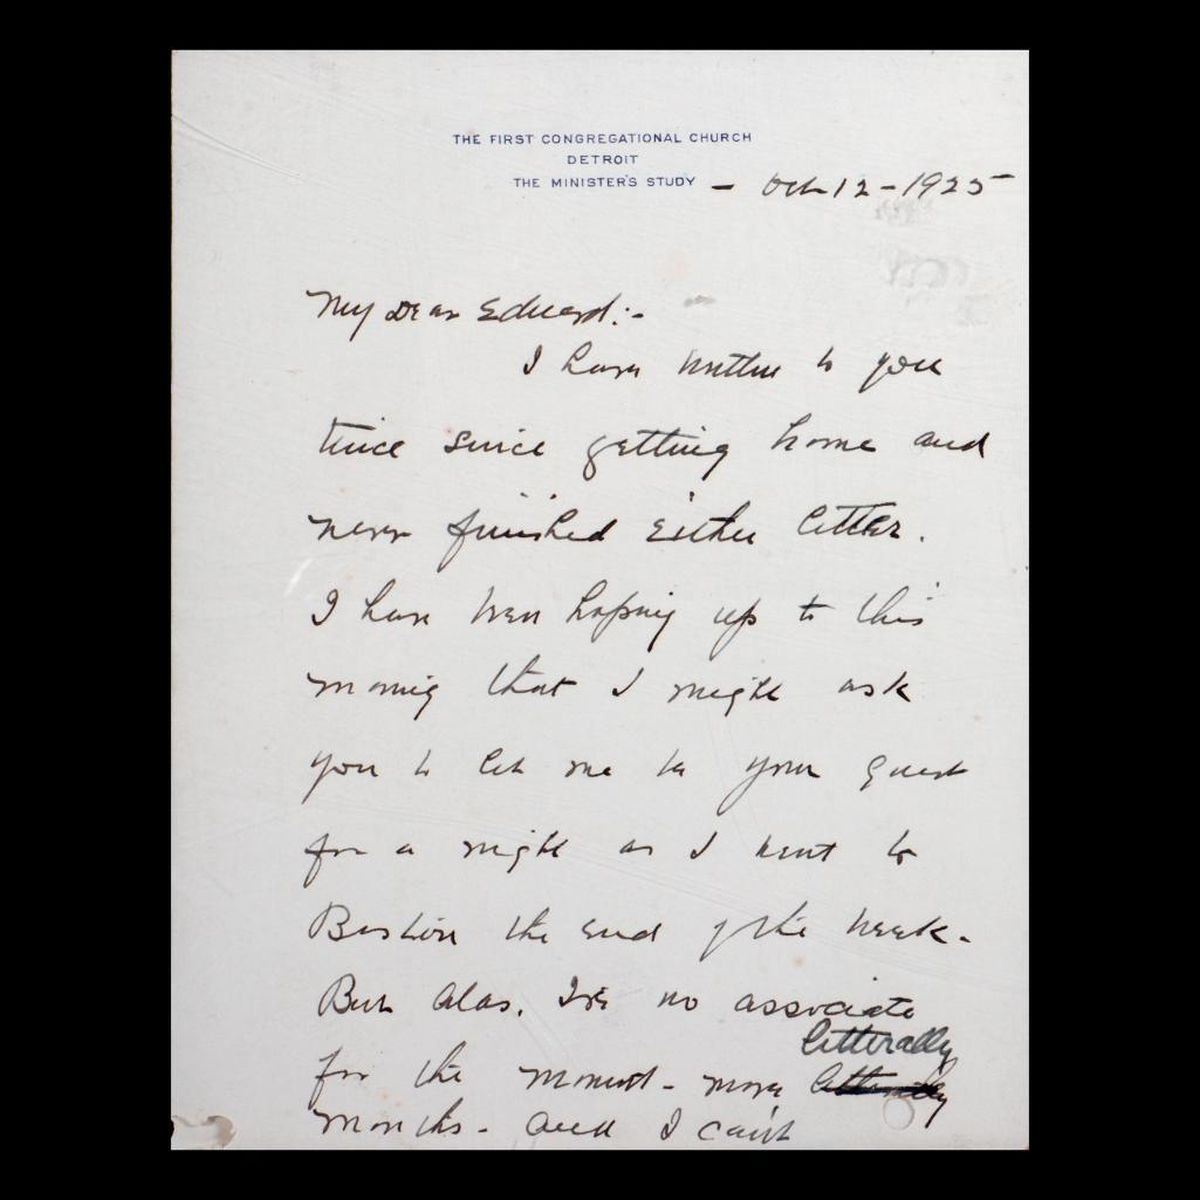 THE FIRST CONGREGATIONAL CHURCH
DETROIT
THE MINISTER'S STUDY - Oct 12 - 1925
My Dear Edward:-
I have written to you
twice since getting home and
never finished either letter.
I have been hoping up to this
morning that I might ask
you to let me be your guest
for a night as I went to
Boston the end of the week.
But alas, I've no associate
litterally
for the moment - more
months - and I can't